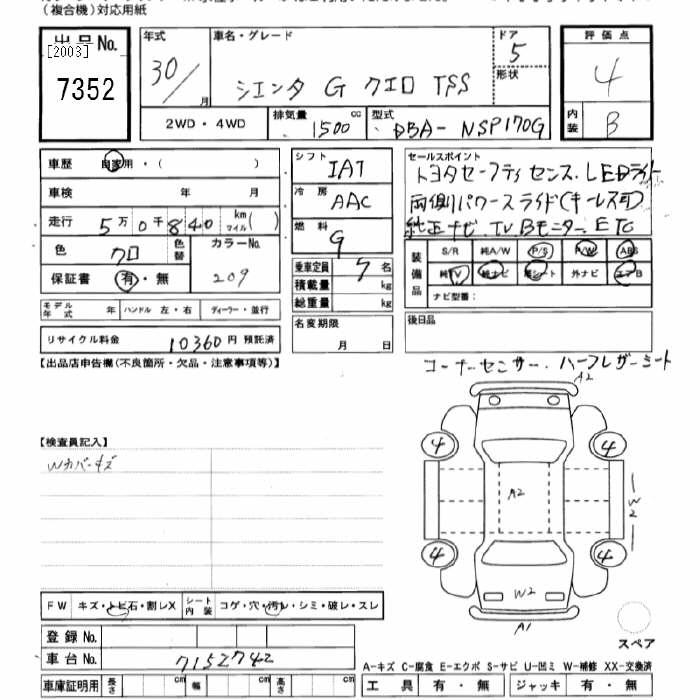 (複合機)対応用紙
出品No.
[2003]
7352
年式
30/
月
車名・グレード
シエンタ G クエロ TSS
ドア
5
形状
評価点
4
内装
B
2WD・4WD
排気量
1500 cc
型式
DBA-NSP170G
車歴 自家用・( )
車検 年 月
走行 5万0千840 km マイル( )
色 クロ
色替
カラーNo.
209
保証書 有・無
モデル年式 年 ハンドル 左・右 ディーラー・並行
リサイクル料金 10360円 預託済
シフト IAT
冷房 AAC
燃料 G
乗車定員 7名
積載量 kg
総重量 kg
名変期限
月 日
セールスポイント
トヨタセーフティセンス. LEDライト
両側パワースライド(キーレス可)
純正ナビ. TV Bモニター. ETC
装備品
S/R 純A/W P/S P/W ABS
純TV 純ナビ 革シート 外ナビ エアB
ナビ型番:
後日品
コーナーセンサー. ハーフレザーシート
【出品店申告欄(不良箇所・欠品・注意事項等)】
【検査員記入】
Wカバーキズ
A2
4
4
A2
W2
4
4
W2
A1
スペア
FW キズ・トビ石・割レX
シート内装 コゲ・穴・汚レ・シミ・破レ・スレ
登録No.
車台No. 7152742
車庫証明用 長さ cm 幅 cm 高さ cm
A-キズ C-腐食 E-エクボ S-サビ U-凹ミ W-補修 XX-交換済
工具 有・無 ジャッキ 有・無